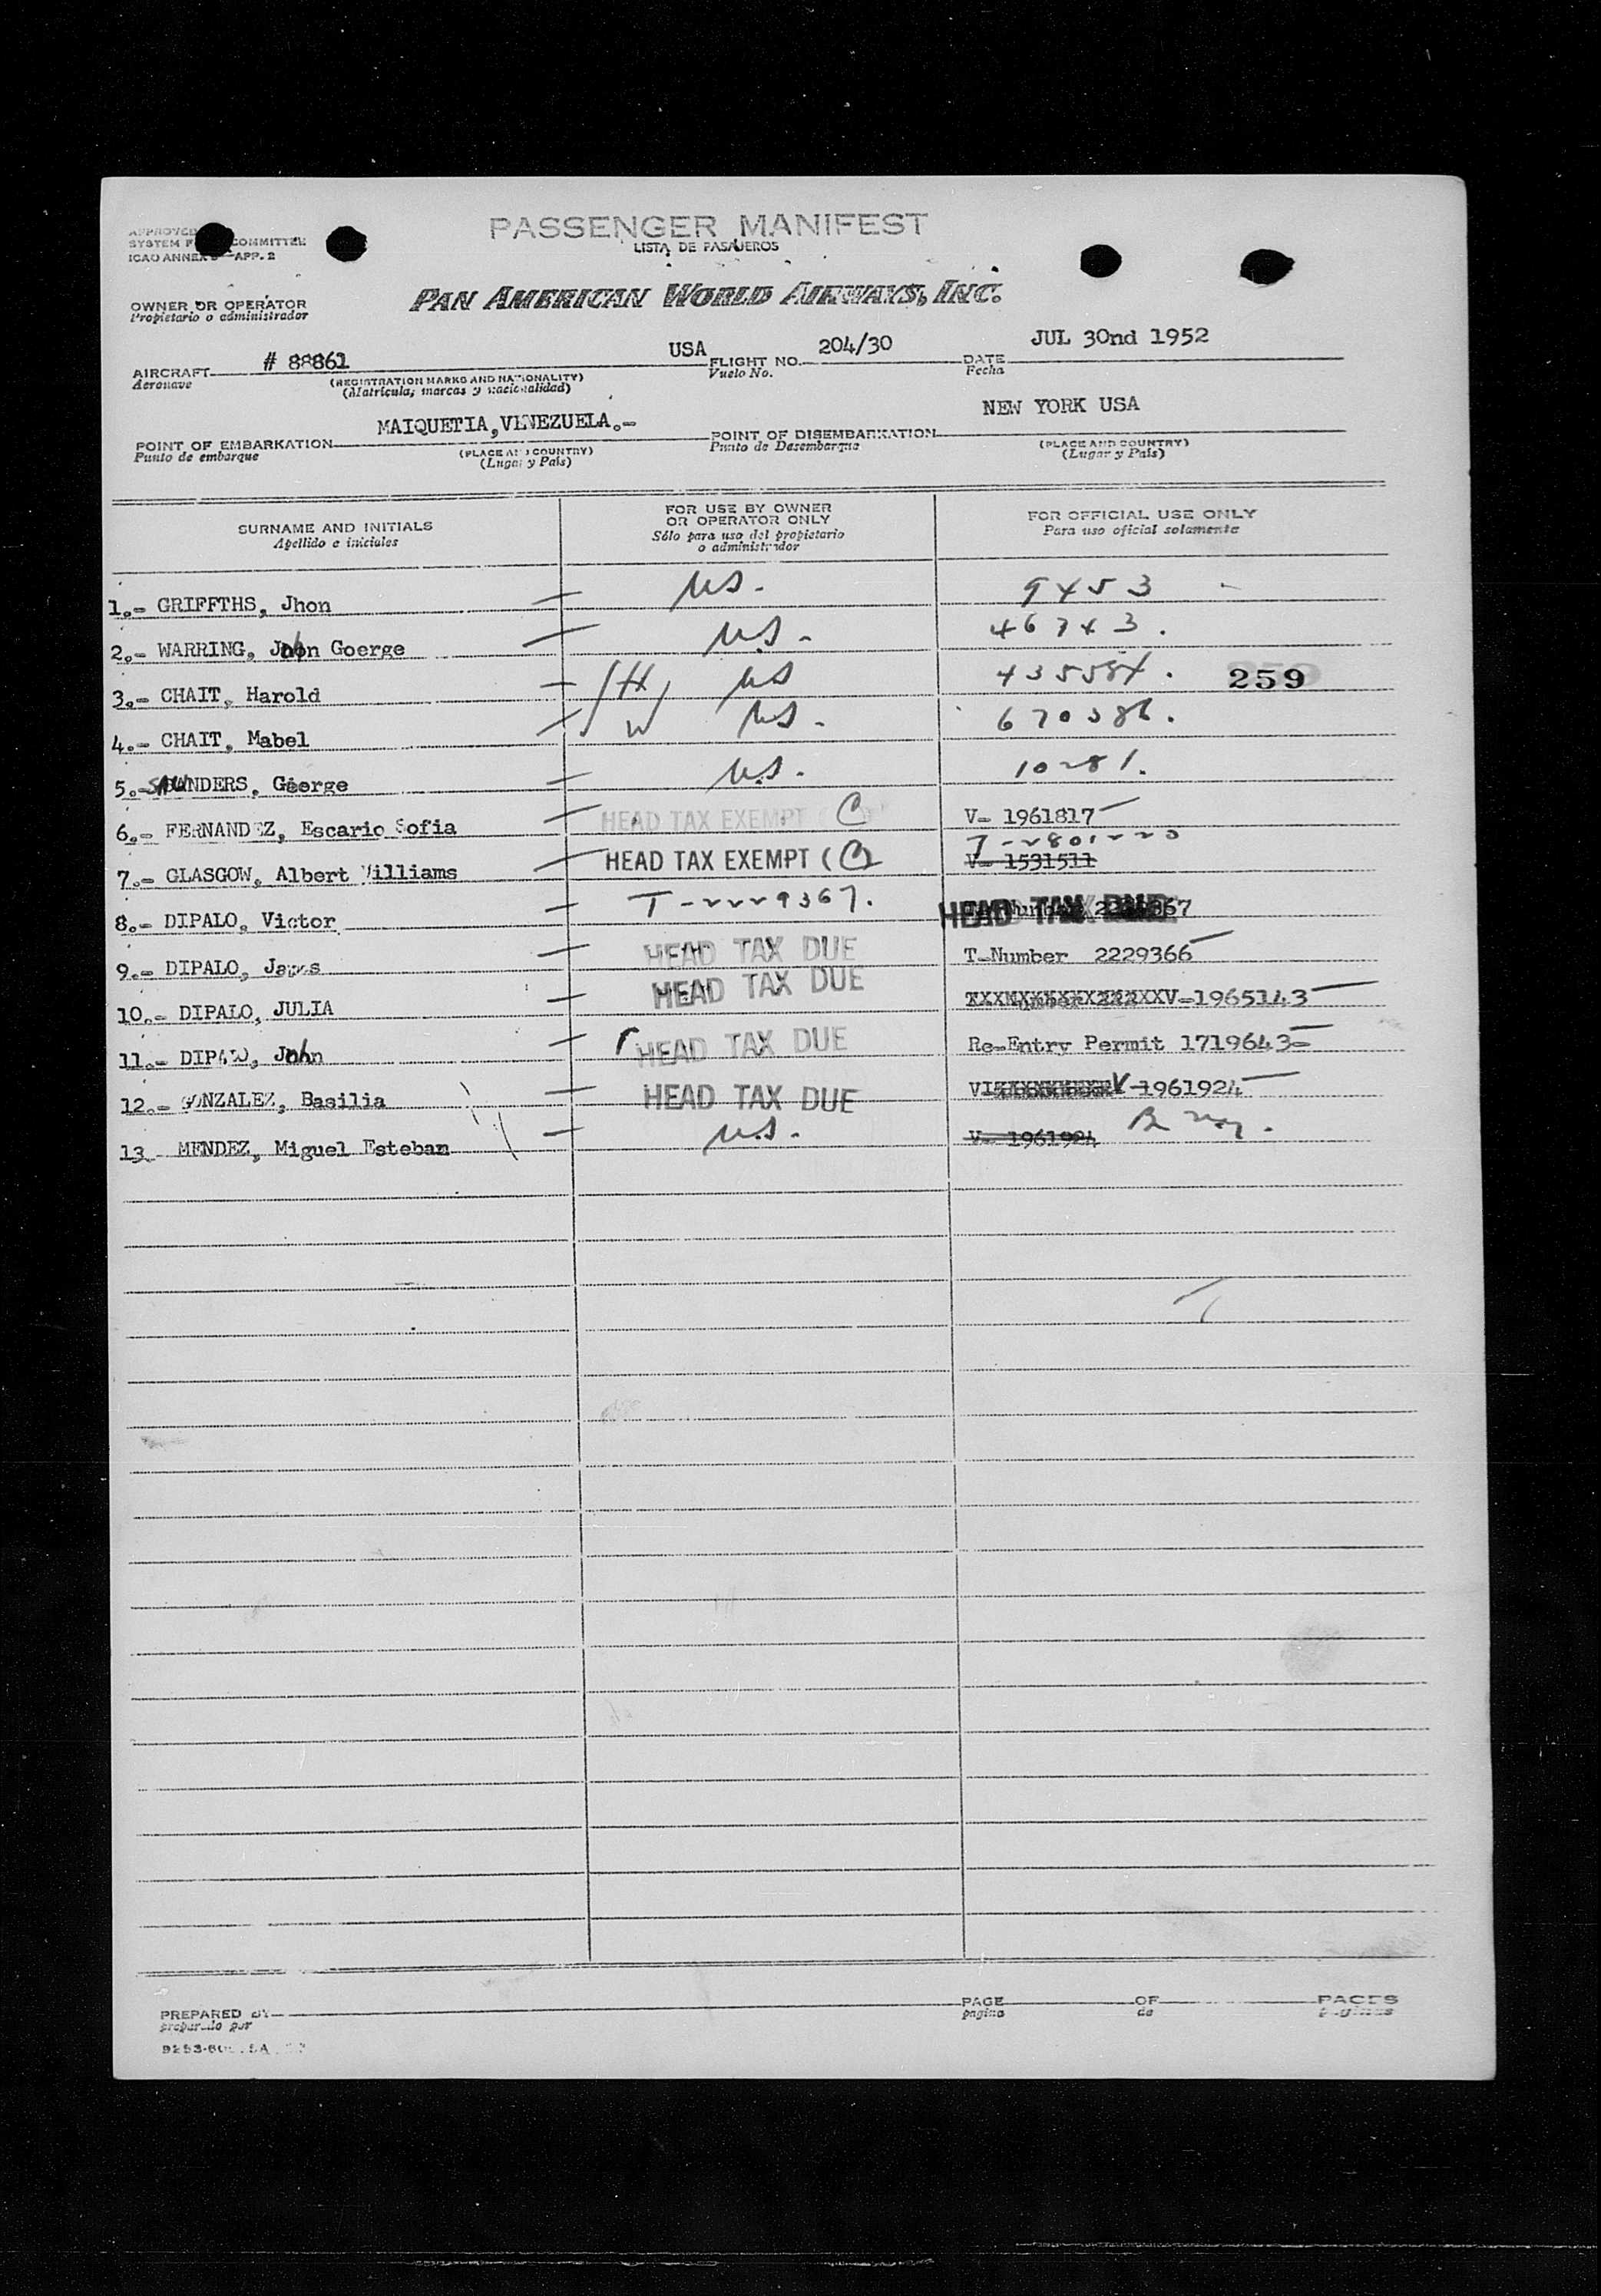 PASSENGER MANIFEST
LISTA DE PASAJEROS
APPROVED
SYSTEM COMMITTEE
ICAO ANNEX APP. 2
OWNER OR OPERATOR
Propietario o administrador
PAN AMERICAN WORLD AIRWAYS, INC.
AIRCRAFT # 88861 USA FLIGHT NO. 204/30 DATE JUL 30nd 1952
Aeronave (REGISTRATION MARKS AND NATIONALITY) Vuelo No. Fecha
(Matrícula, marcas y nacionalidad)
POINT OF EMBARKATION MAIQUETIA,VENEZUELA.- POINT OF DISEMBARKATION NEW YORK USA
Punto de embarque (PLACE AND COUNTRY) Punto de Desembarque (PLACE AND COUNTRY)
(Lugar y País) (Lugar y País)
SURNAME AND INITIALS FOR USE BY OWNER OR OPERATOR ONLY FOR OFFICIAL USE ONLY
Apellido e iniciales Sólo para uso del propietario o administrador Para uso oficial solamente
1.- GRIFFTHS, Jhon US. 9453
2.- WARRING, John Goerge U.S. 46743.
3.- CHAIT, Harold H US 435584. 259
4.- CHAIT, Mabel W US. 670386.
5.- SAUNDERS, George U.S. 10281.
6.- FERNANDEZ, Escario Sofia HEAD TAX EXEMPT C V- 1961817
7.- GLASGOW, Albert Williams HEAD TAX EXEMPT (C) V- 1531511
8.- DIPALO, Victor T-2229367. HEAD TAX DUE
9.- DIPALO, James HEAD TAX DUE T-Number 2229366
10.- DIPALO, JULIA HEAD TAX DUE V-1965143
11.- DIPALO, John HEAD TAX DUE Re-Entry Permit 1719643-
12.- GONZALEZ, Basilia HEAD TAX DUE V-1961924
13.- MENDEZ, Miguel Esteban U.S. V- 1961924
PREPARED BY PAGE OF PAGES
preparado por página de páginas